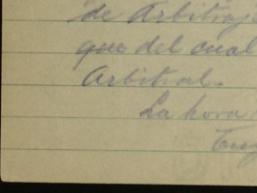 de Arbitraje
que del cual
Arbitral.
La hora